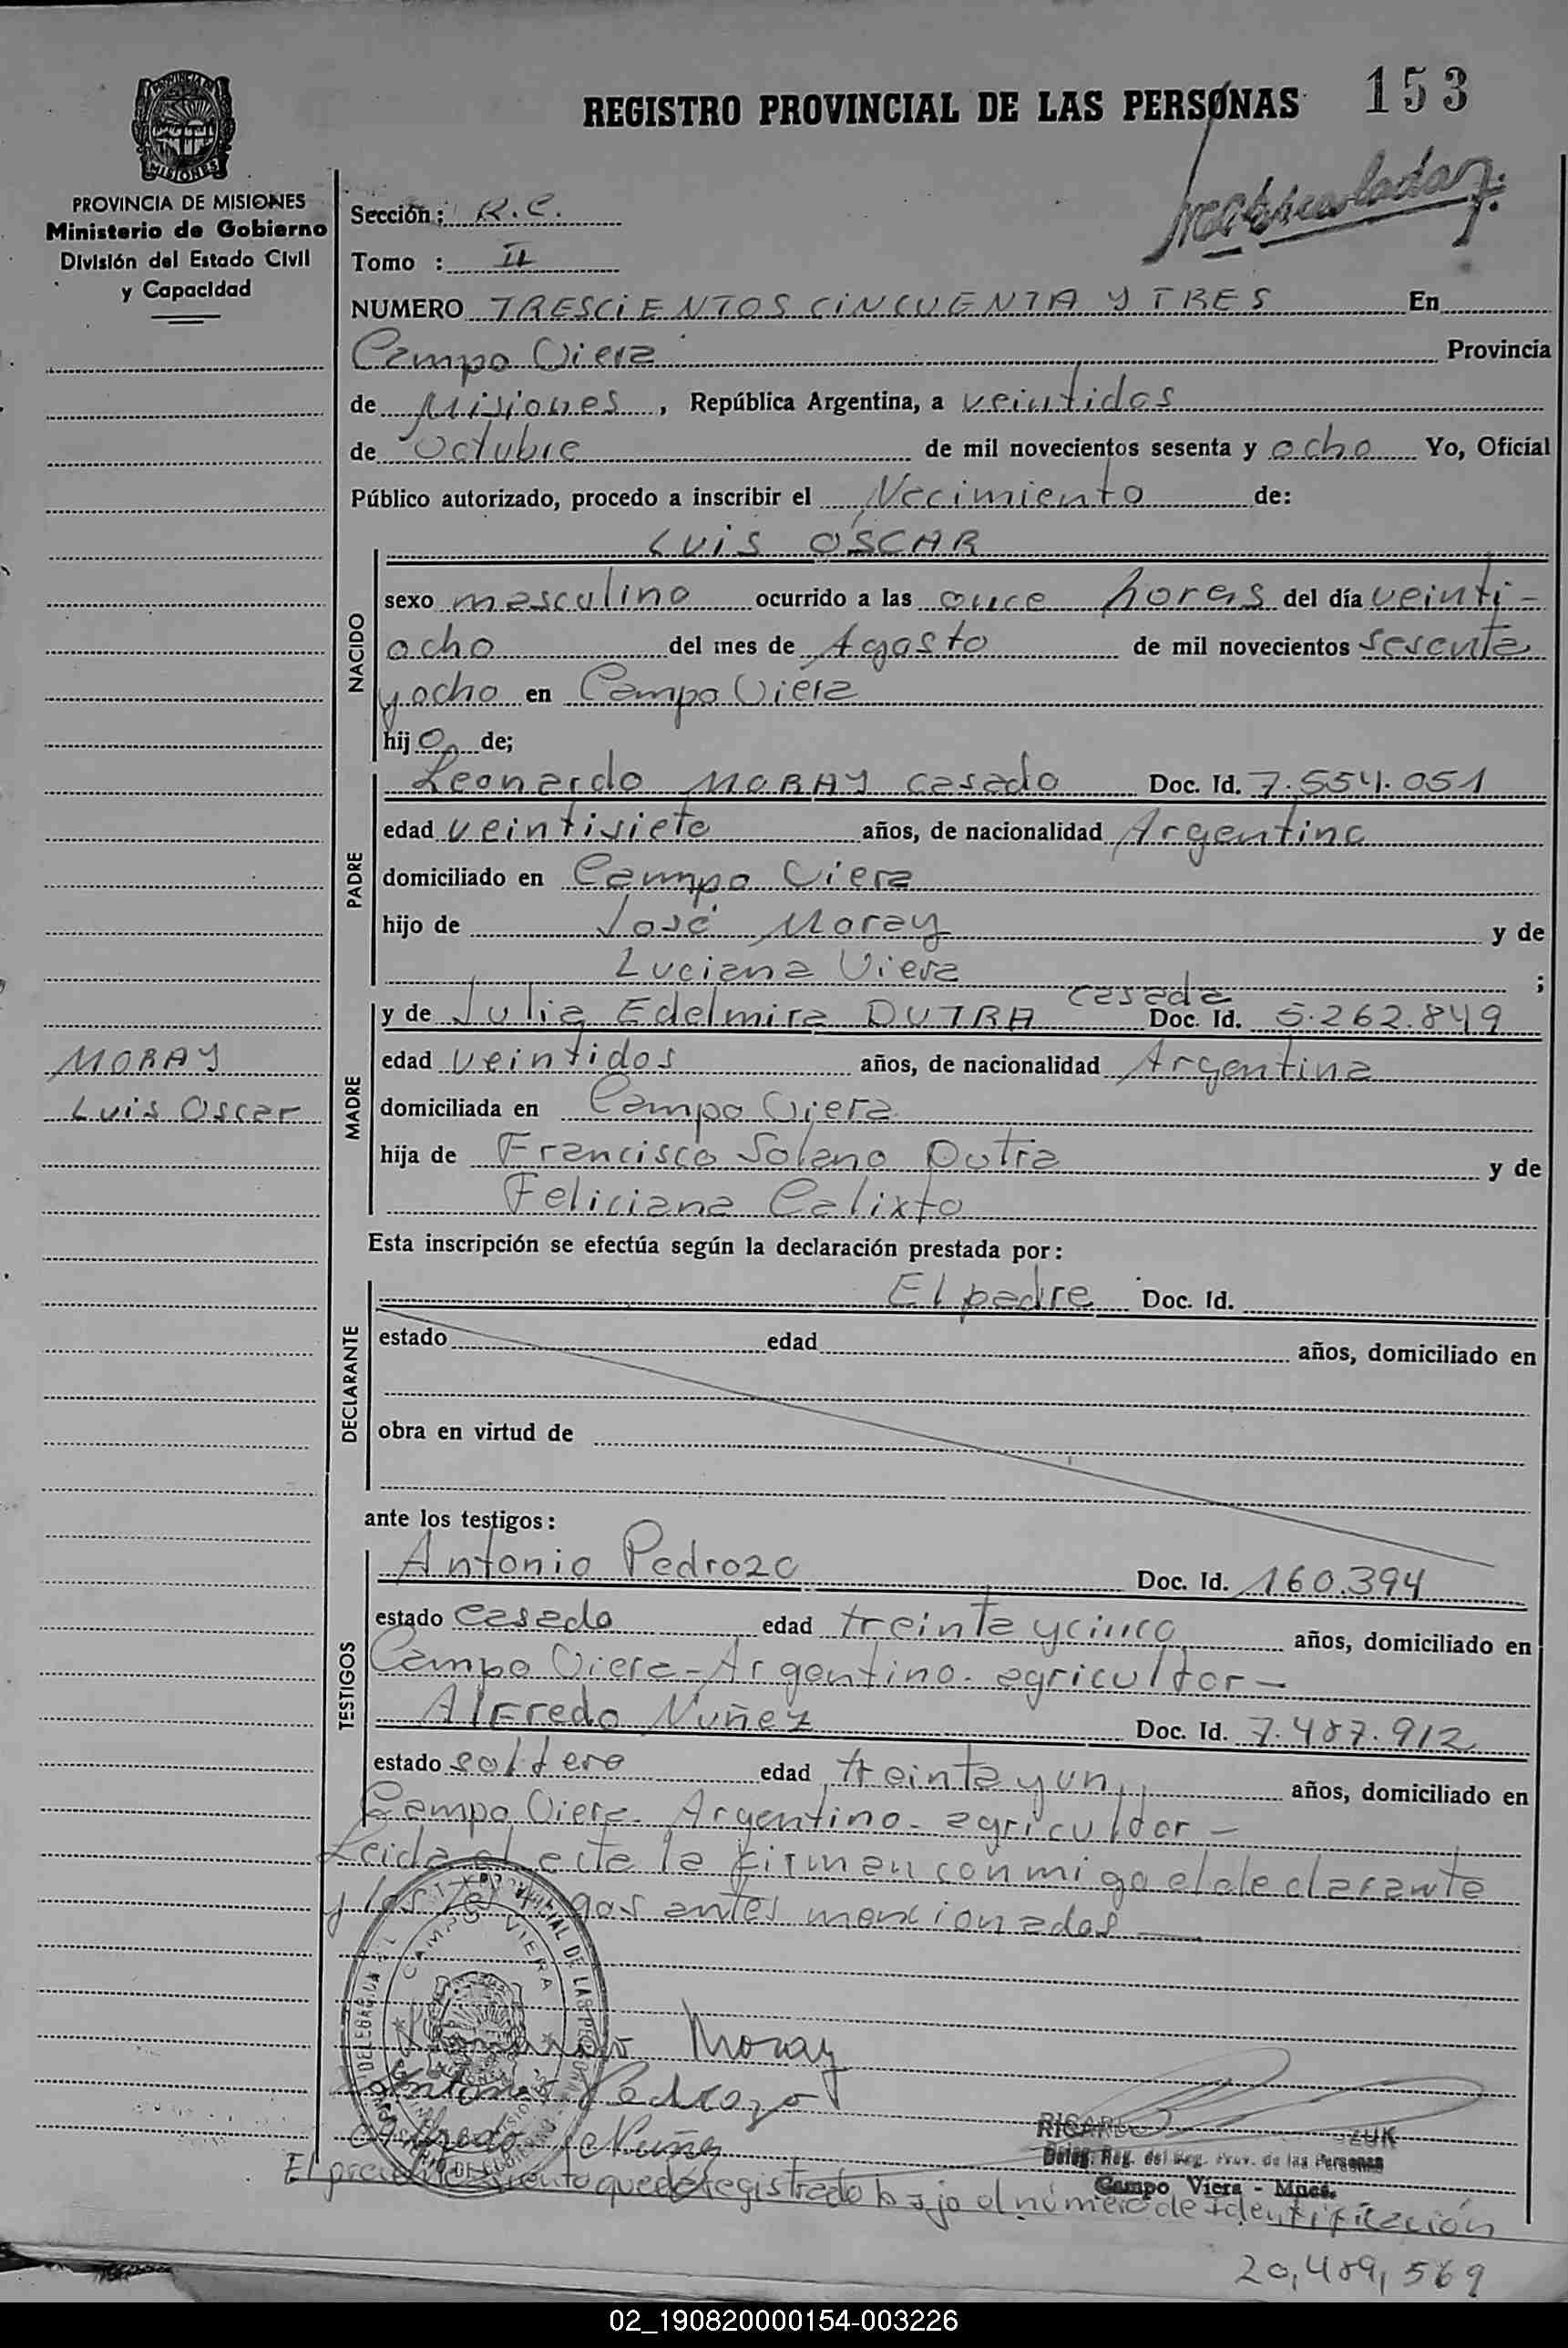 REGISTRO PROVINCIAL DE LAS PERSONAS 153
MISIONES
PROVINCIA DE MISIONES
Ministerio de Gobierno
División del Estado Civil
y Capacidad
Sección: R.C.
Tomo : II
NUMERO TRESCIENTOS CINCUENTA Y TRES En
Campo Viera Provincia
de Misiones, República Argentina, a veintidos
de Octubre de mil novecientos sesenta y ocho Yo, Oficial
Público autorizado, procedo a inscribir el Nacimiento de:
LUIS OSCAR
NACIDO
sexo masculino ocurrido a las once horas del día veinti-
ocho del mes de Agosto de mil novecientos sesenta
y ocho en Campo Viera
hijo de;
PADRE
Leonardo MORAY casado Doc. Id. 7.554.051
edad veintisiete años, de nacionalidad Argentina
domiciliado en Campo Viera
hijo de José Moray y de
Luciana Viera ;
MADRE
y de Julia Edelmira DUTRA casada Doc. Id. 5.262.849
edad veintidos años, de nacionalidad Argentina
MORAY
Luis Oscar
domiciliada en Campo Viera
hija de Francisco Solano Dutra y de
Feliciana Calixto
Esta inscripción se efectúa según la declaración prestada por:
DECLARANTE
El padre Doc. Id.
estado edad años, domiciliado en
obra en virtud de
ante los testigos:
TESTIGOS
Antonio Pedrozo Doc. Id. 160.394
estado casado edad treinta y cinco años, domiciliado en
Campo Viera - Argentino - agricultor -
Alfredo Nuñez Doc. Id. 7.487.912
estado soltero edad treinta y un años, domiciliado en
Campo Viera - Argentino - agricultor -
Leida el acta la firman conmigo el declarante
y los testigos antes mencionados
CAMPO VIERA
Moray
Antonio Pedrozo
Alfredo Nuñez
RICARDO
Deleg. Reg. del Reg. Prov. de las Personas
Campo Viera - Mnes.
El presente queda registrado bajo el número de Identificación
20,489,569
02_190820000154-003226